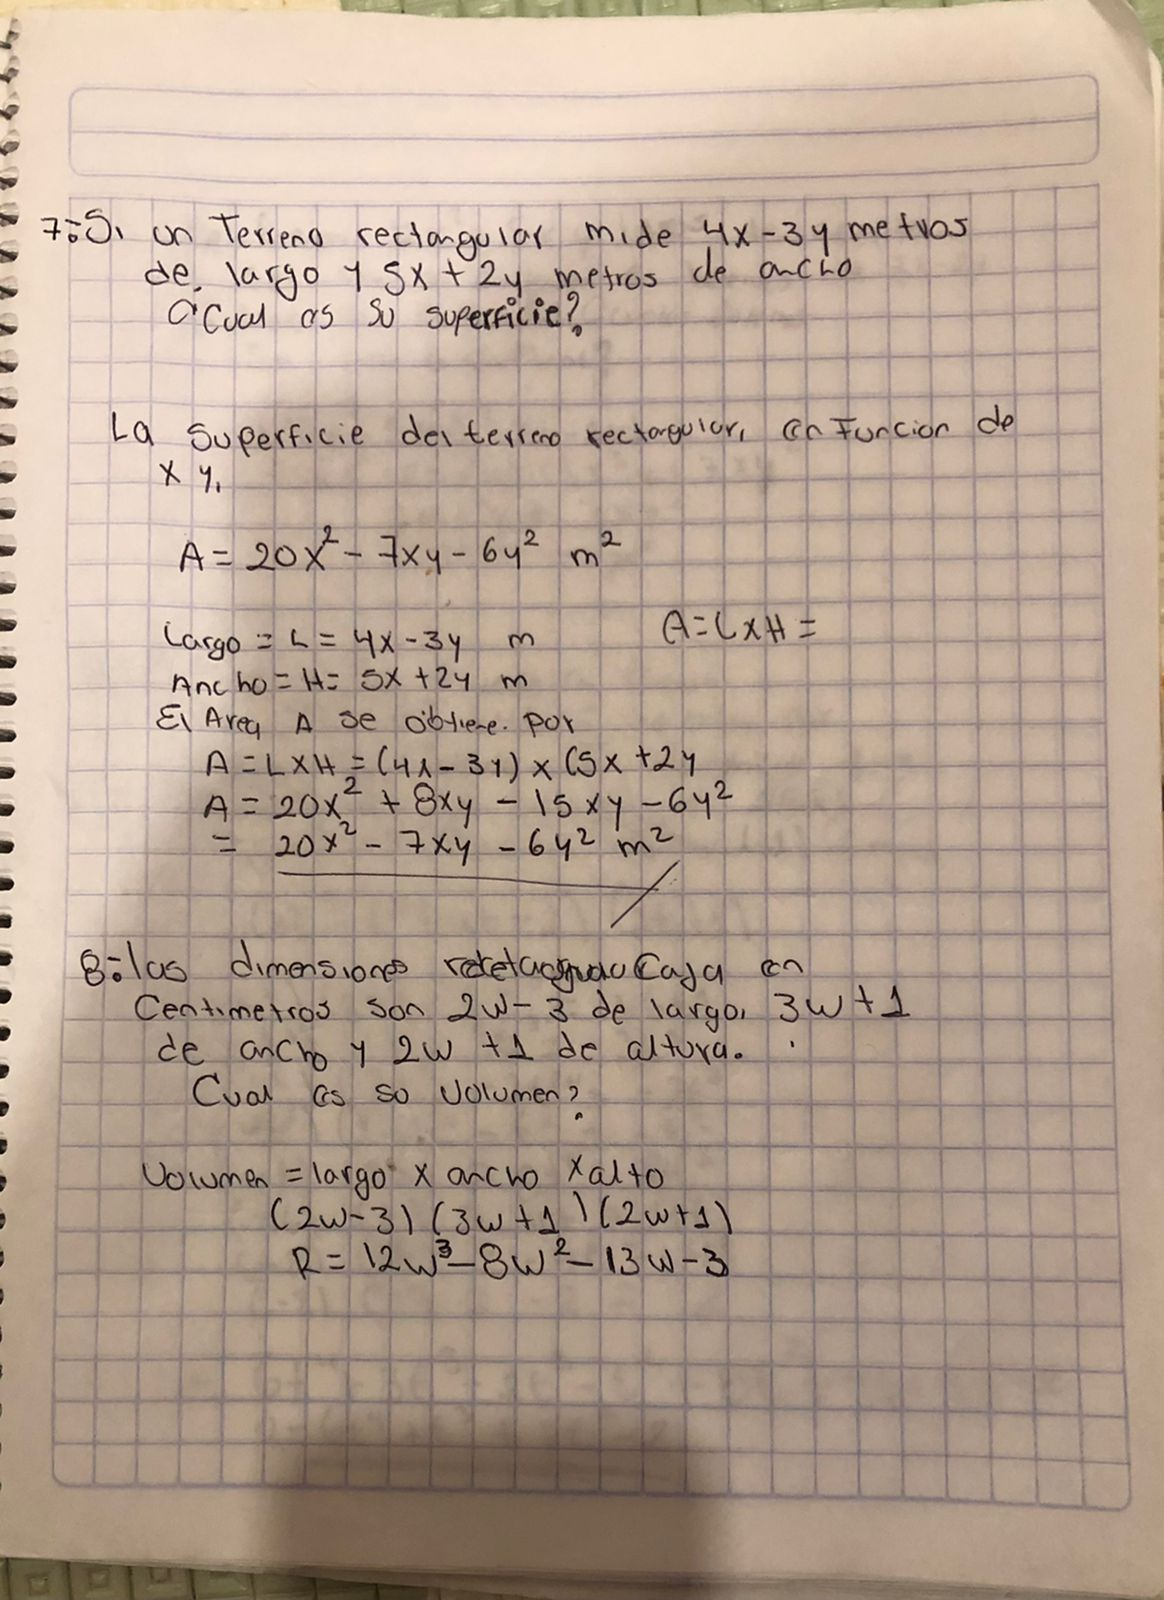 7:Si un Terreno rectangular mide 4x-3y metros
de largo y 5x+2y metros de ancho
Cual es su superficie?
La superficie del terreno rectangular, en Funcion de
x y,
A = 20x² - 7xy - 6y² m²
Largo = L = 4x-3y m
A=LxH=
Ancho = H= 5x+2y m
El Area A se obtiene por
A=LXH=(4x-3y)x(5x+2y
A = 20x² + 8xy - 15xy - 6y²
= 20x² - 7xy - 6y² m²
8:las dimensiones Caja en
Centimetros son 2w-3 de largo, 3w+1
de ancho y 2w +1 de altura.
Cual es so volumen?
Volumen = largo x ancho x alto
(2w-3) (3w+1) (2w+1)
R= 12w³-8w²-13w-3